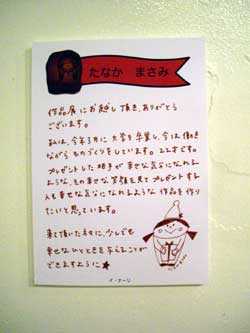 たなか まさみ
作品展にお越し頂き、ありがとう
ございます。
私は、今年3月に大学を卒業し、今は働き
ながらものづくりをしています。22才です。
プレゼントした相手が幸せな気分になれる
ような、その幸せな笑顔を見てプレゼントする
人も幸せな気分になれるような作品を作り
たいと思っています。
来て頂いた方々に、少しでも
幸せなひとときを与えることが
できますように★